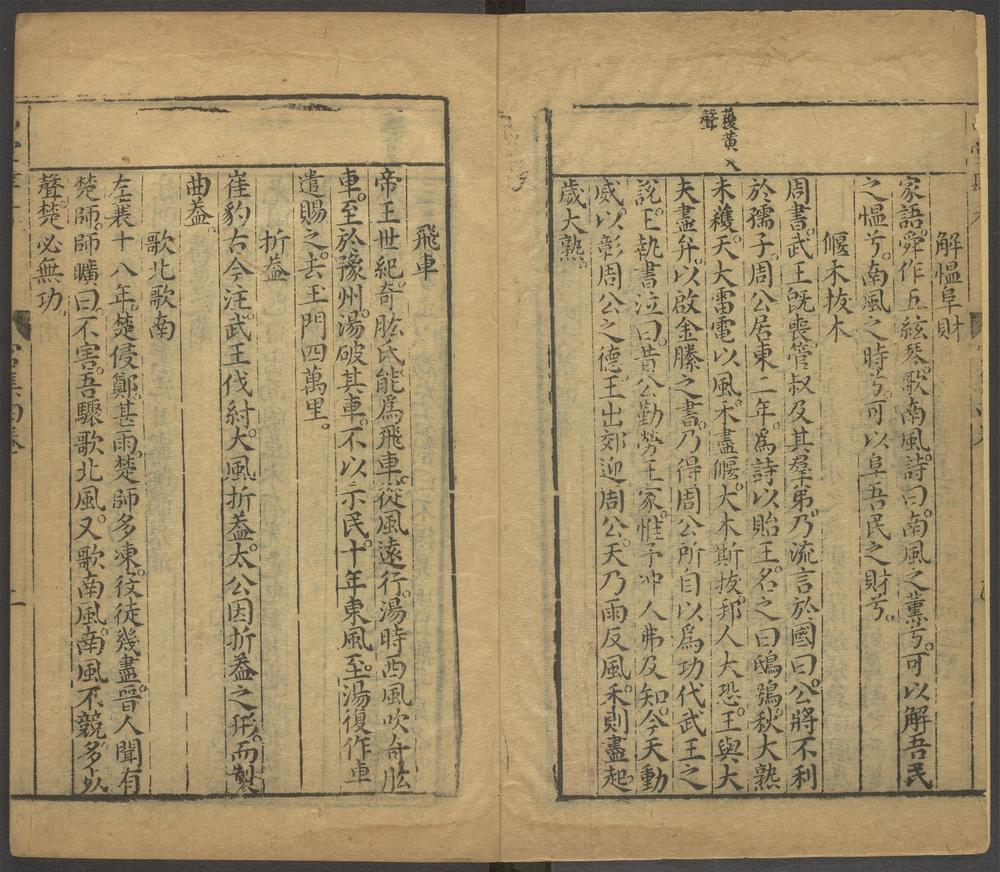 解愠阜財
家語。舜作五絃琴。歌南風。詩曰。南風之薰兮。可以解吾民
之愠兮。南風之時兮。可以阜吾民之財兮。
偃禾拔木
周書。武王旣喪。管叔及其羣弟。乃流言於國曰。公將不利
於孺子。周公居東二年。爲詩以貽王。名之曰鴟鴞。秋大熟
未穫。天大雷電以風。禾盡偃。大木斯拔。邦人大恐。王與大
夫盡弁。以啟金縢之書。乃得周公所自以爲功代武王之
說。王執書泣曰。昔公勤勞王家。惟予冲人弗及知。今天動
威。以彰周公之德。王出郊迎周公。天乃雨反風。禾則盡起。
歲大熟。
穫黃入
聲
飛車
帝王世紀。奇肱氏能爲飛車。從風遠行。湯時西風吹奇肱
車。至於豫州。湯破其車。不以示民。十年東風至。湯復作車
遣賜之。去玉門四萬里。
折葢
崔豹古今注。武王伐紂。大風折葢。太公因折葢之形。而製
曲葢。
歌北歌南
左襄十八年。楚侵鄭。甚雨。楚師多凍。役徒幾盡。晉人聞有
楚師。師曠曰。不害。吾驟歌北風。又歌南風。南風不競。多死
聲。楚必無功。